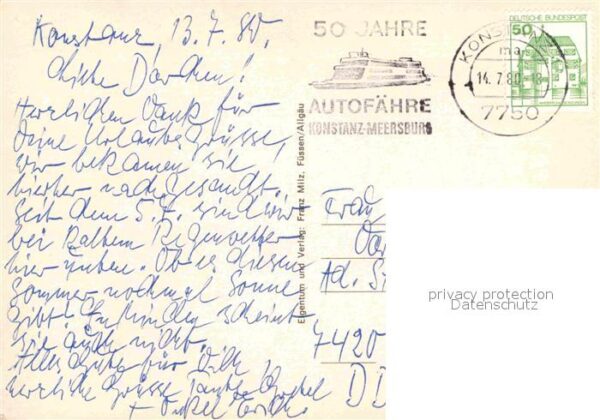 Konstanz, 13.7.80.
Liebe
Herzlichen Dank für
Deine Urlaubsgrüsse,
wir bekamen sie
hierher nachgesandt.
Seit dem 5.7. sind wir
bei kaltem Regenwetter
hier
Ob es diesen
Sommer nochmal Sonne
gibt.
scheint
sie auch nicht.
Alles Gute für Dich
herzliche Grüsse Tante
+ Onkel
50 JAHRE
AUTOFÄHRE
KONSTANZ-MEERSBURG
KONSTANZ
ma
14.7.80-18
7750
DEUTSCHE BUNDESPOST
50
Eigentum und Verlag: Franz Milz, Füssen/Allgäu
Frau
Ad. St
7420
DD
privacy protection
Datenschutz